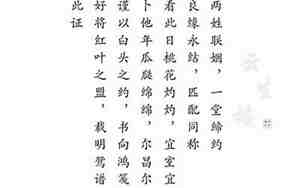 两姓联姻，一堂缔约
良缘永结，匹配同称
看此日桃花灼灼，宜室宜
卜他年瓜瓞绵绵，尔昌尔
谨以白头之约，书向鸿笺
好将红叶之盟，载明鸳谱
此证